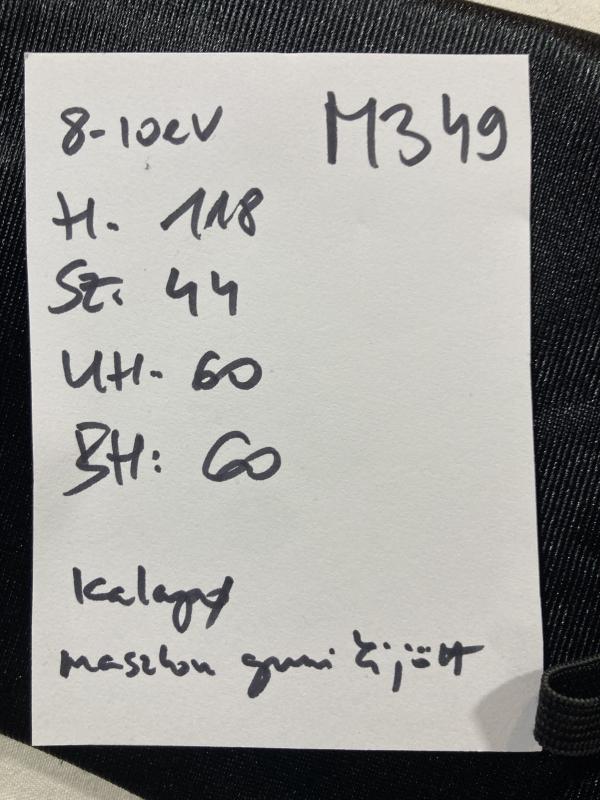 8-10év M349
H. 118
Sz. 44
UH. 60
BH: 60
Kalap
maszkon gumi kijött